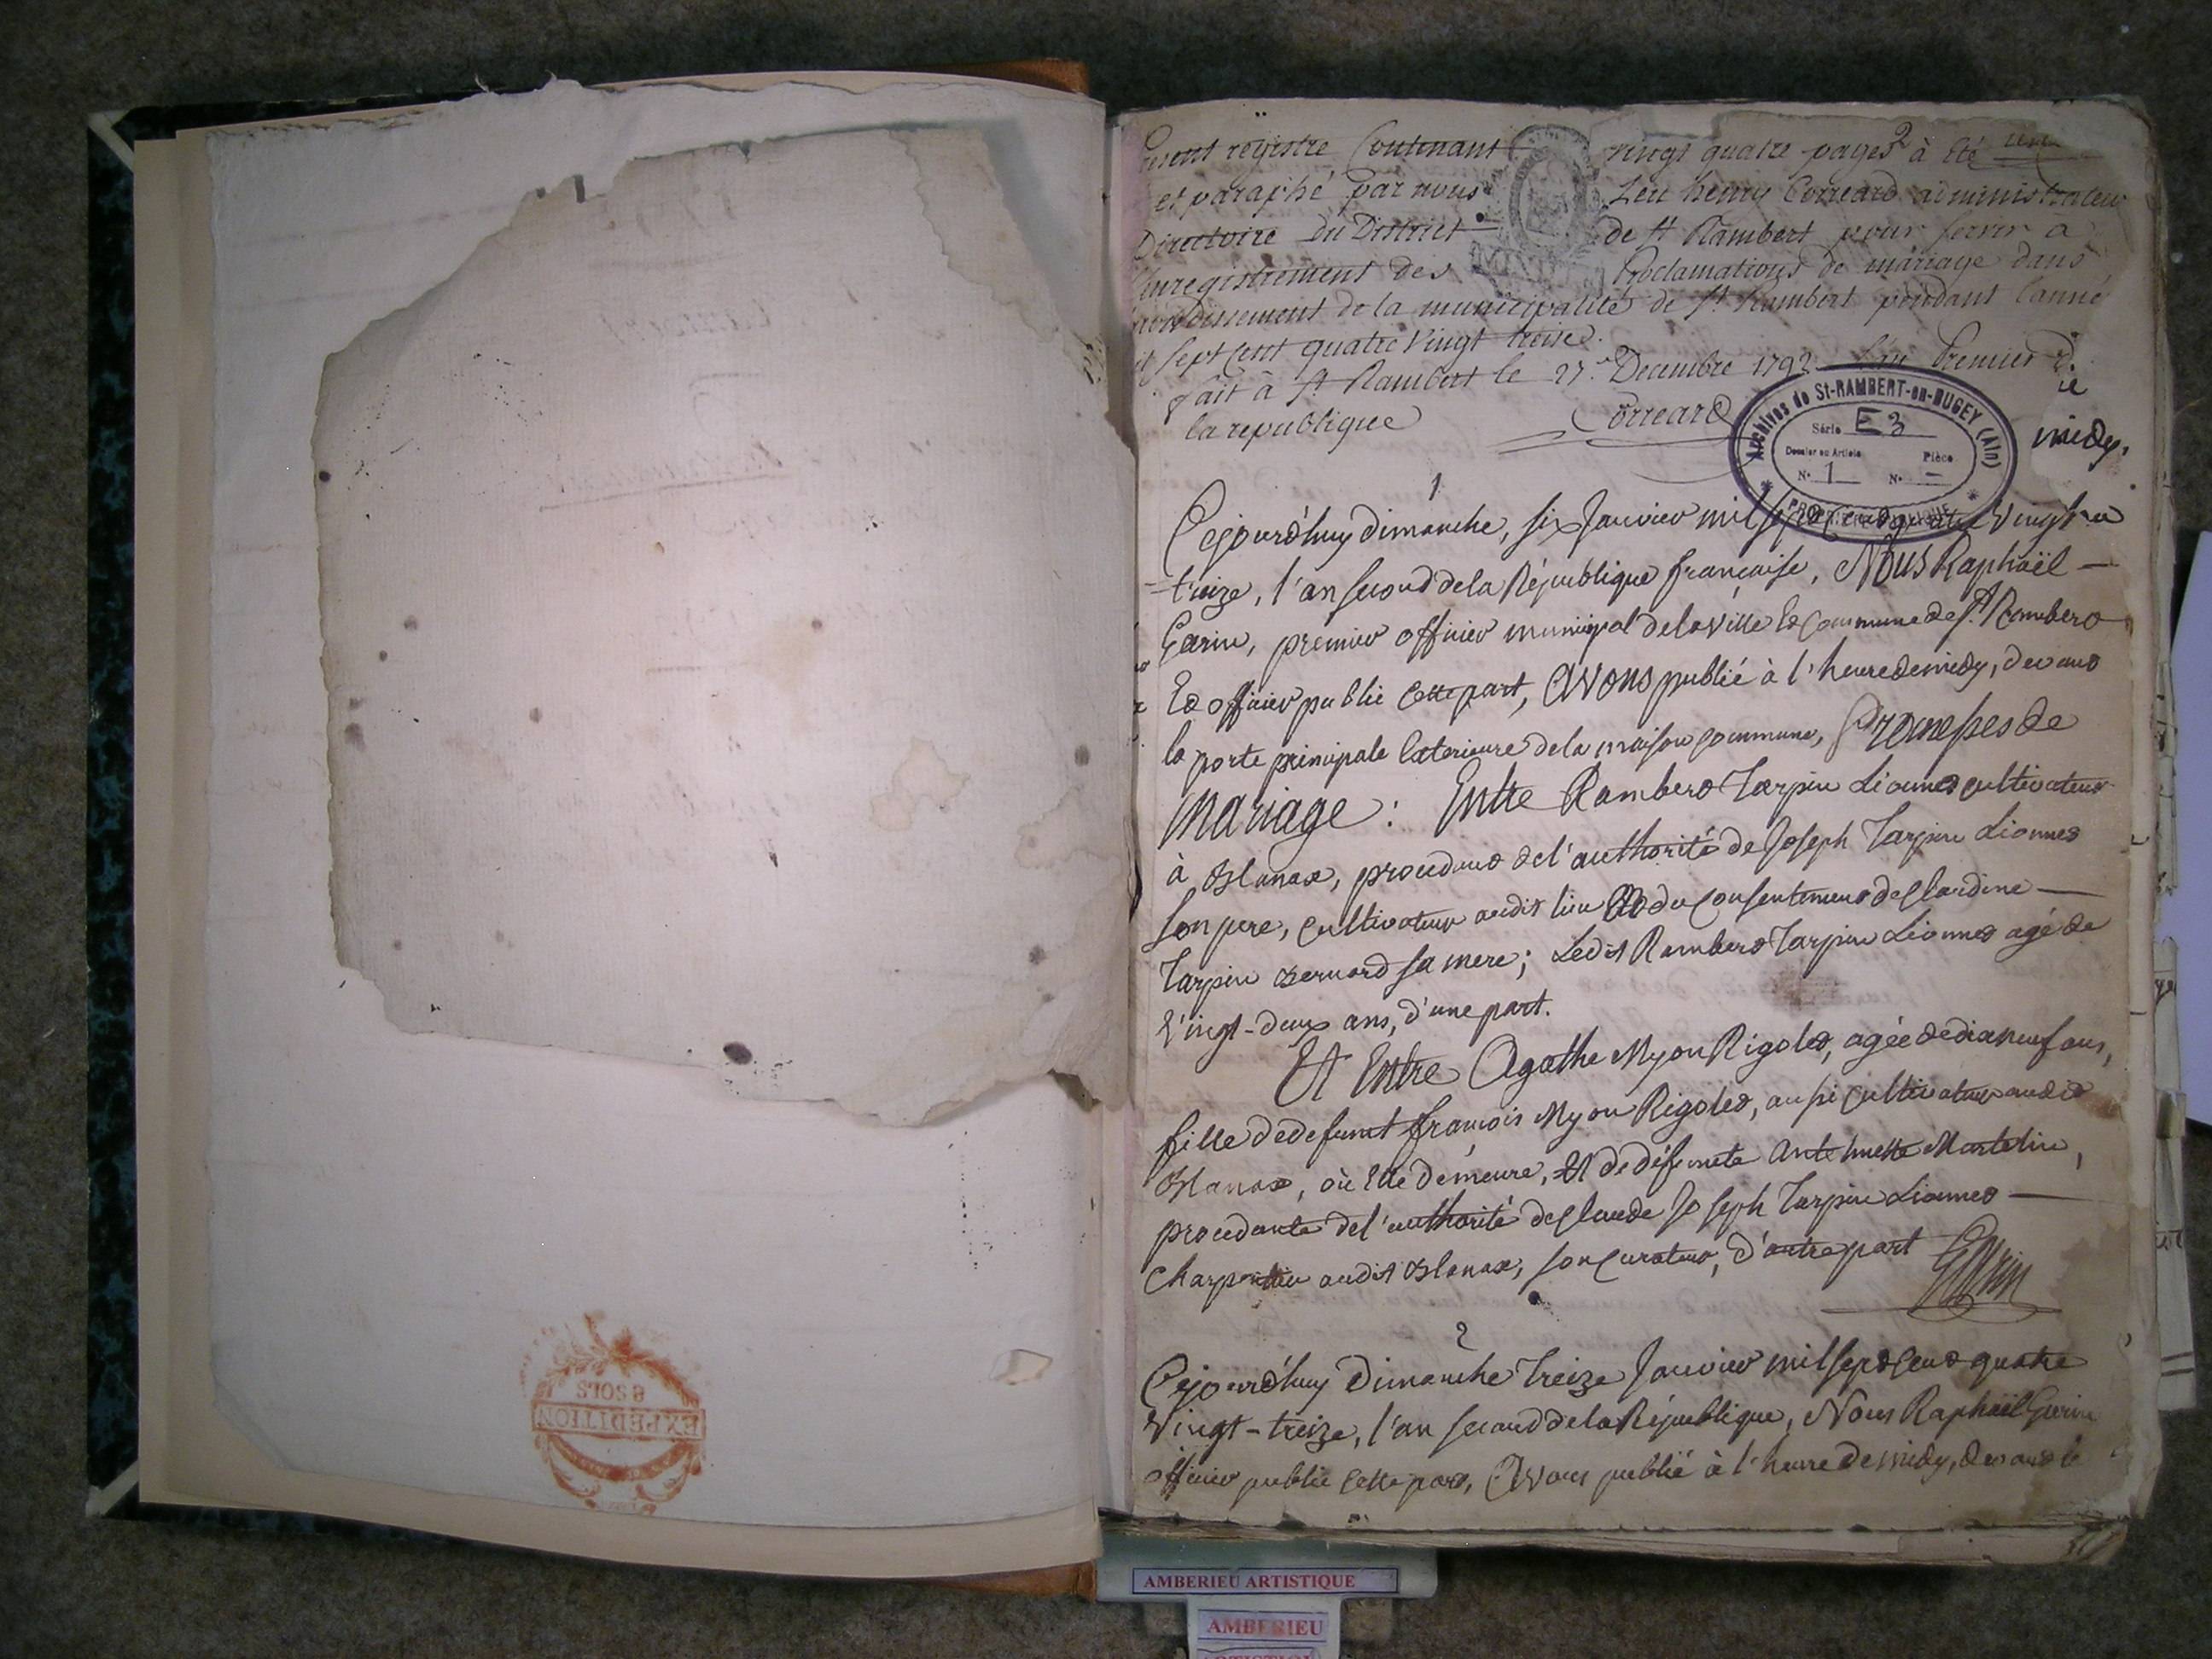 6 SOLS
EXPEDITION
present registre Contenant vingt quatre pages à été
et paraphé par nous Leu henry Correard administrateur
Directoire du District de St Rambert pour servir à
l'enregistrement des proclamations de mariage dans
l'arrondissement de la municipalité de St Rambert pendant l'année
sept cent quatre vingt treise.
fait à St Rambert le 27 Decembre 1792 l'an Premier
la republique Correard
Archives de St-RAMBERT-en-BUGEY (Ain)
Série E 3
Dossier ou Article Pièce
N° 1 N° -
midy.
1
Cejourd'huy dimanche, six Janvier mil sept cent quatre vingt
-treize, l'an second de la République française, Nous Raphaël
Garin, premier officier municipal de la ville Et Commune de St. Rambert
Et officier public Cette part, Avons publié à l'heure de midy, devant
la porte principale Exterieure de la maison commune, Promesses de
Mariage : Entre Rambert Tarpin Lionnet cultivateur
à Blanax, procedant de l'authorité de Joseph Tarpin Lionnet
son pere, cultivateur audit lieu Et du Consentement de Claudine
Tarpin Bernard sa mere ; Ledit Rambert Tarpin Lionnet agé de
Vingt-deux ans, d'une part.
Et Entre Agathe Myon Rigolet, agée de dixneuf ans,
fille de defunt françois Myon Rigolet, aussi Cultivateur audit
Blanax, où Elle demeure, Et de défunte Antelmette Martelin,
procedante de l'authorité de Claude Joseph Tarpin Lionnet
Charpentier audit Blanax, son Curateur, d'autre part Garin
2
Cejourd'huy Dimanche Treize Janvier mil sept Cent quatre
Vingt-treize, l'an second de la République, Nous Raphaël Garin
officier public Cette part, Avons publié à l'heure de midy, devant la
AMBERIEU ARTISTIQUE
AMBERIEU
ARTISTIQUE